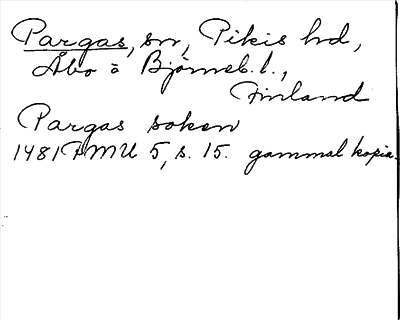 Pargas, sn, Pikis hd,
Åbo o Björneb. l.,
Finland
Pargas soken
1481 FMU 5, s. 15. gammal kopia.